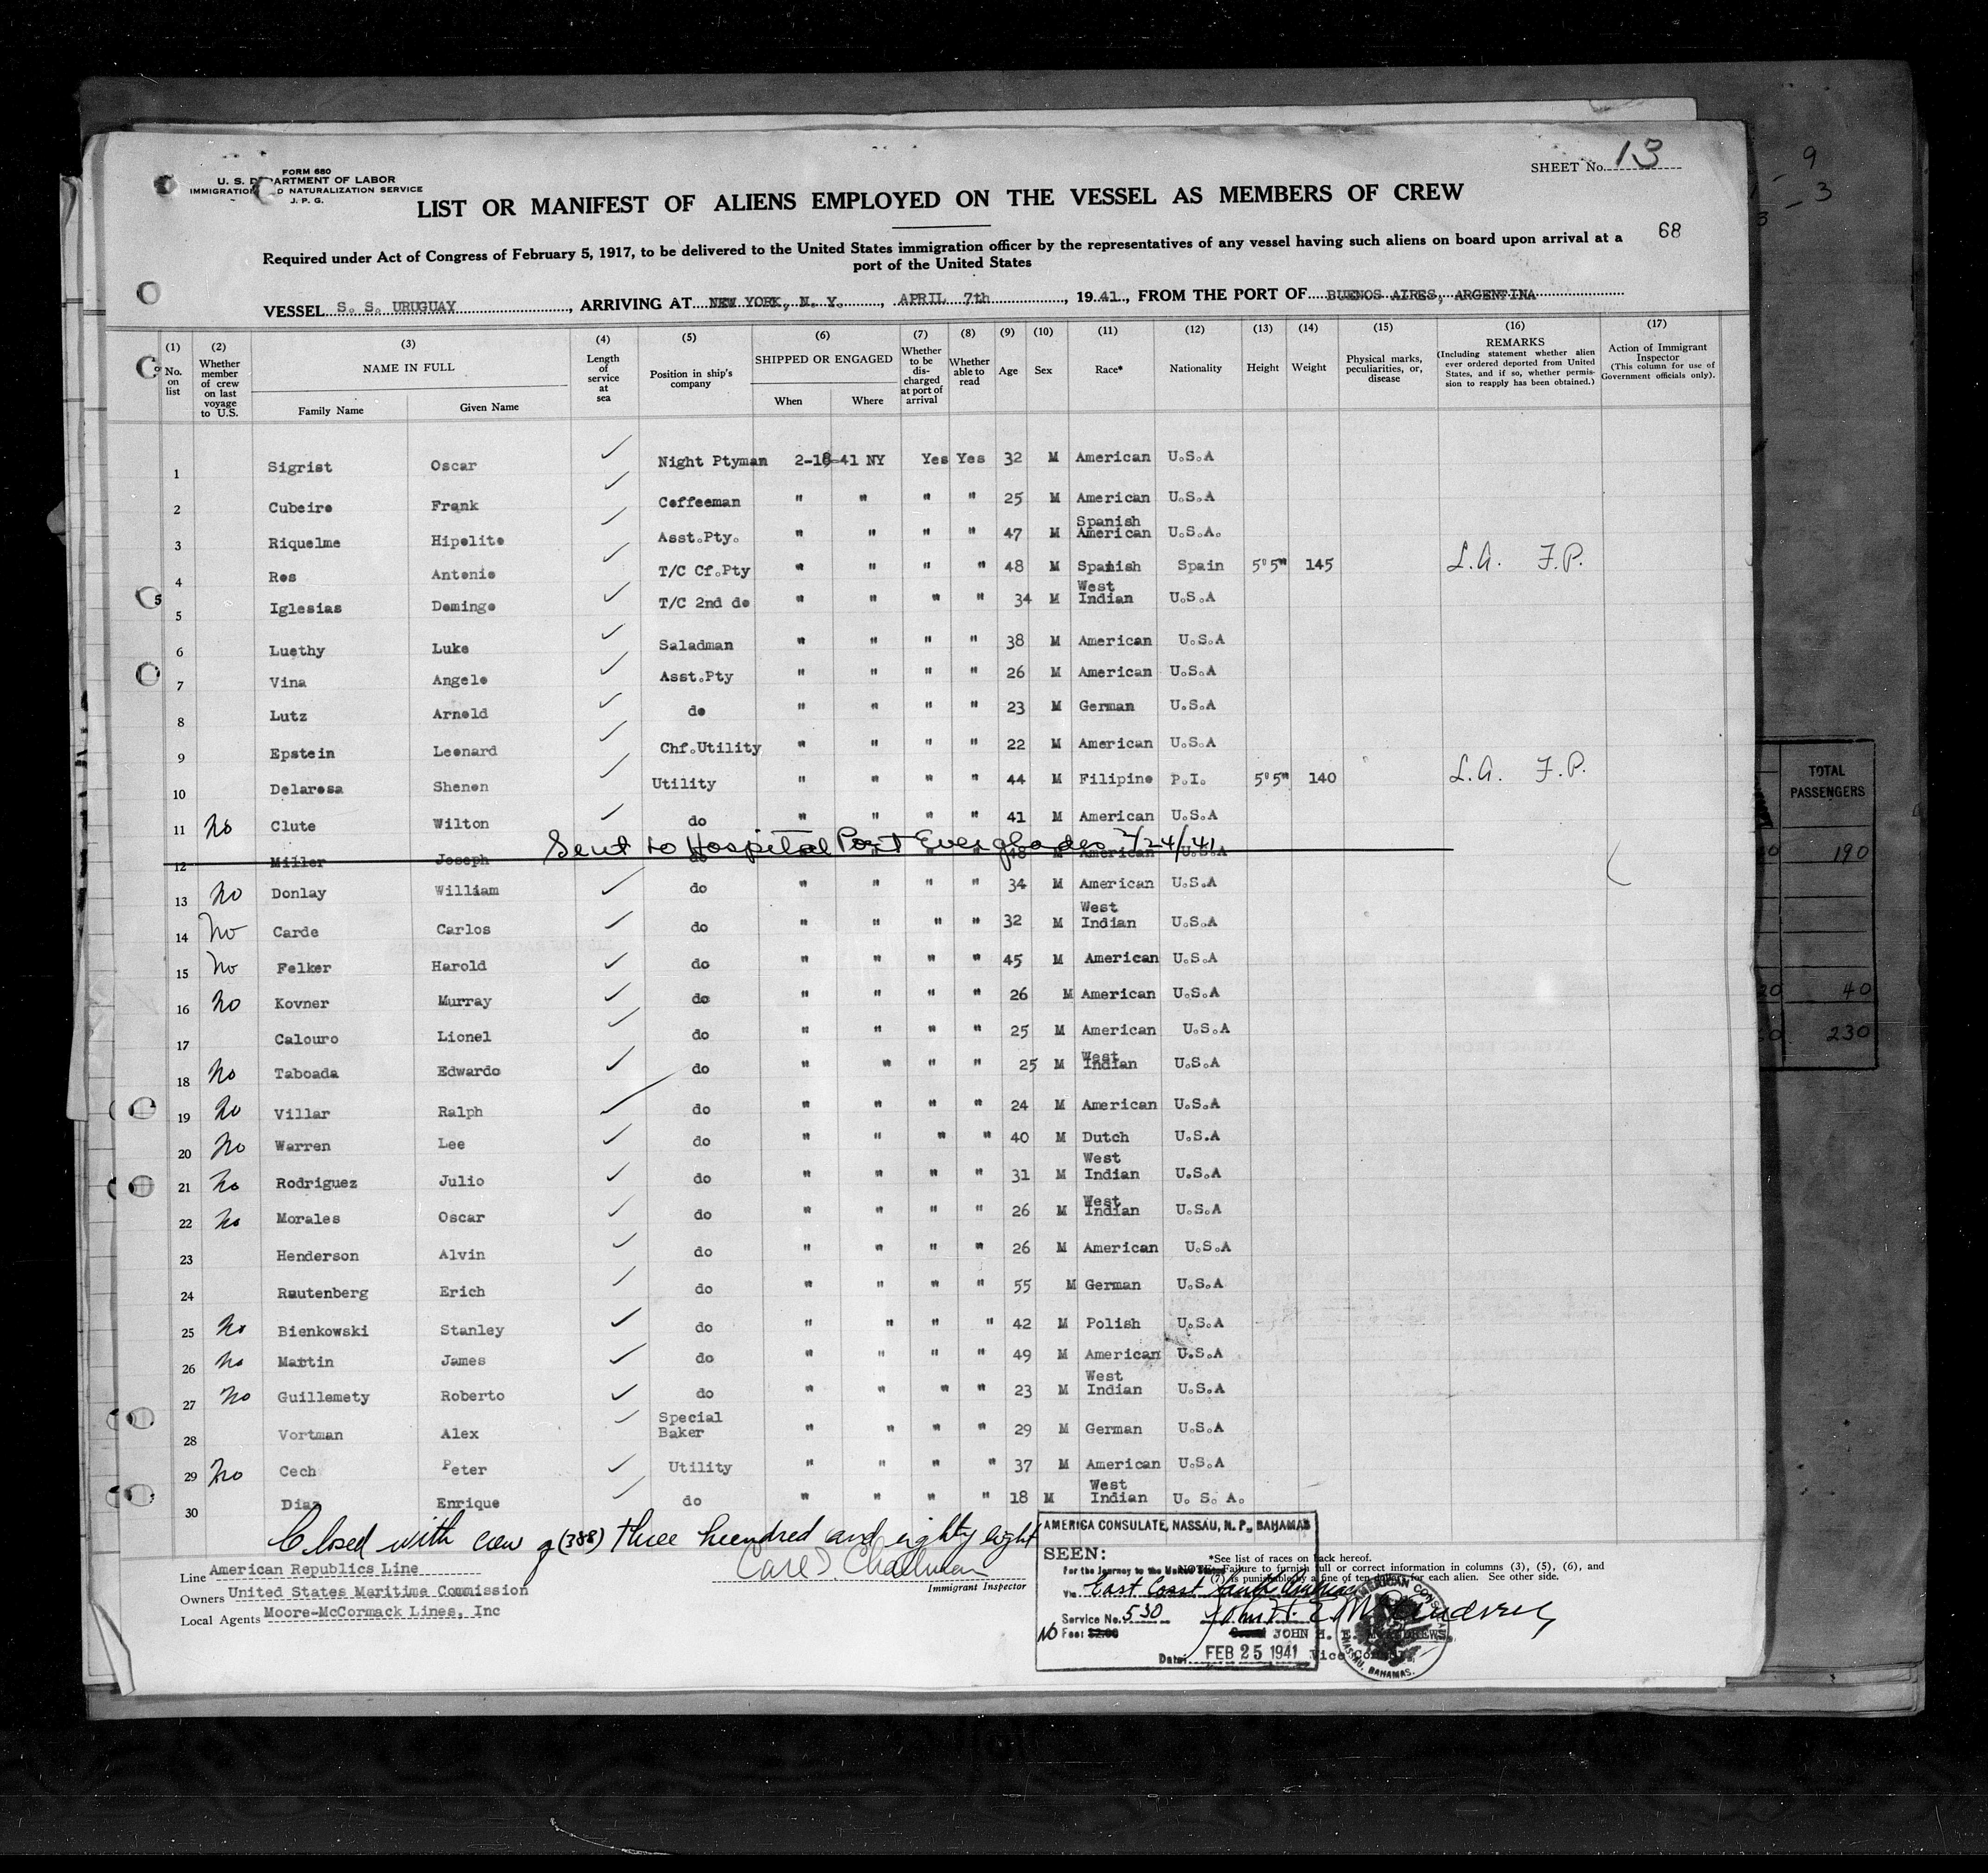 FORM 680
U. S. DEPARTMENT OF LABOR
IMMIGRATION AND NATURALIZATION SERVICE
J. P. G.
SHEET No. 13
LIST OR MANIFEST OF ALIENS EMPLOYED ON THE VESSEL AS MEMBERS OF CREW
68
Required under Act of Congress of February 5, 1917, to be delivered to the United States immigration officer by the representatives of any vessel having such aliens on board upon arrival at a
port of the United States
VESSEL S. S. URUGUAY, ARRIVING AT NEW YORK, N. Y., APRIL 7th, 1941, FROM THE PORT OF BUENOS AIRES, ARGENTINA
(1) No. on list
(2) Whether member of crew on last voyage to U.S.
(3) NAME IN FULL
Family Name Given Name
(4) Length of service at sea
(5) Position in ship's company
(6) SHIPPED OR ENGAGED
When Where
(7) Whether to be discharged at port of arrival
(8) Whether able to read
(9) Age
(10) Sex
(11) Race*
(12) Nationality
(13) Height
(14) Weight
(15) Physical marks, peculiarities, or, disease
(16) REMARKS (Including statement whether alien ever ordered deported from United States, and if so, whether permission to reapply has been obtained.)
(17) Action of Immigrant Inspector (This column for use of Government officials only).
1 Sigrist Oscar ✓ Night Ptyman 2-18-41 NY Yes Yes 32 M American U.S.A
2 Cubeiro Frank ✓ Coffeeman " " " " 25 M American U.S.A
3 Riquelme Hipolito ✓ Asst.Pty. " " " " 47 M Spanish American U.S.A.
4 Ros Antonio ✓ T/C Cf.Pty " " " " 48 M Spanish Spain 5'5" 145 L.A. F.P.
5 Iglesias Domingo ✓ T/C 2nd do " " " " 34 M West Indian U.S.A
6 Luethy Luke ✓ Saladman " " " " 38 M American U.S.A
7 Vina Angelo ✓ Asst.Pty " " " " 26 M American U.S.A
8 Lutz Arnold ✓ do " " " " 23 M German U.S.A
9 Epstein Leonard ✓ Chf.Utility " " " " 22 M American U.S.A
10 Delarosa Shenon ✓ Utility " " " " 44 M Filipino P.I. 5'5" 140 L.A. F.P.
11 no Clute Wilton ✓ do " " " " 41 M American U.S.A
Sent to Hospital Port Everglades 2/24/41
12 Miller Joseph do " " " " 48 M American U.S.A
13 no Donlay William ✓ do " " " " 34 M American U.S.A
14 no Carde Carlos ✓ do " " " " 32 M West Indian U.S.A
15 no Felker Harold ✓ do " " " " 45 M American U.S.A
16 no Kovner Murray ✓ do " " " " 26 M American U.S.A
17 Calouro Lionel ✓ do " " " " 25 M American U.S.A
18 no Taboada Edwardo ✓ do " " " " 25 M West Indian U.S.A
19 no Villar Ralph ✓ do " " " " 24 M American U.S.A
20 no Warren Lee ✓ do " " " " 40 M Dutch U.S.A
21 no Rodriguez Julio ✓ do " " " " 31 M West Indian U.S.A
22 no Morales Oscar ✓ do " " " " 26 M West Indian U.S.A
23 Henderson Alvin ✓ do " " " " 26 M American U.S.A
24 Rautenberg Erich ✓ do " " " " 55 M German U.S.A
25 no Bienkowski Stanley ✓ do " " " " 42 M Polish U.S.A
26 no Martin James ✓ do " " " " 49 M American U.S.A
27 no Guillemety Roberto ✓ do " " " " 23 M West Indian U.S.A
28 Vortman Alex ✓ Special Baker " " " " 29 M German U.S.A
29 no Cech Peter ✓ Utility " " " " 37 M American U.S.A
30 Diaz Enrique ✓ do " " " " 18 M West Indian U. S. A.
Closed with crew of (388) three hundred and eighty eight
Line American Republics Line
Owners United States Maritime Commission
Local Agents Moore-McCormack Lines, Inc
Immigrant Inspector
*See list of races on back hereof.
NOTE: Failure to furnish full or correct information in columns (3), (5), (6), and
(7) is punishable by a fine of ten dollars for each alien. See other side.
AMERICA CONSULATE, NASSAU, N. P., BAHAMAS
SEEN:
For the Journey to the United States
Via East Coast South America
Service No. 530
No Fee: $2.00
JOHN H. E. McANDREWS,
Vice Consul
Date: FEB 25 1941
AMERICAN CONSULATE
NASSAU, BAHAMAS.
TOTAL
PASSENGERS
190
40
230
9
3